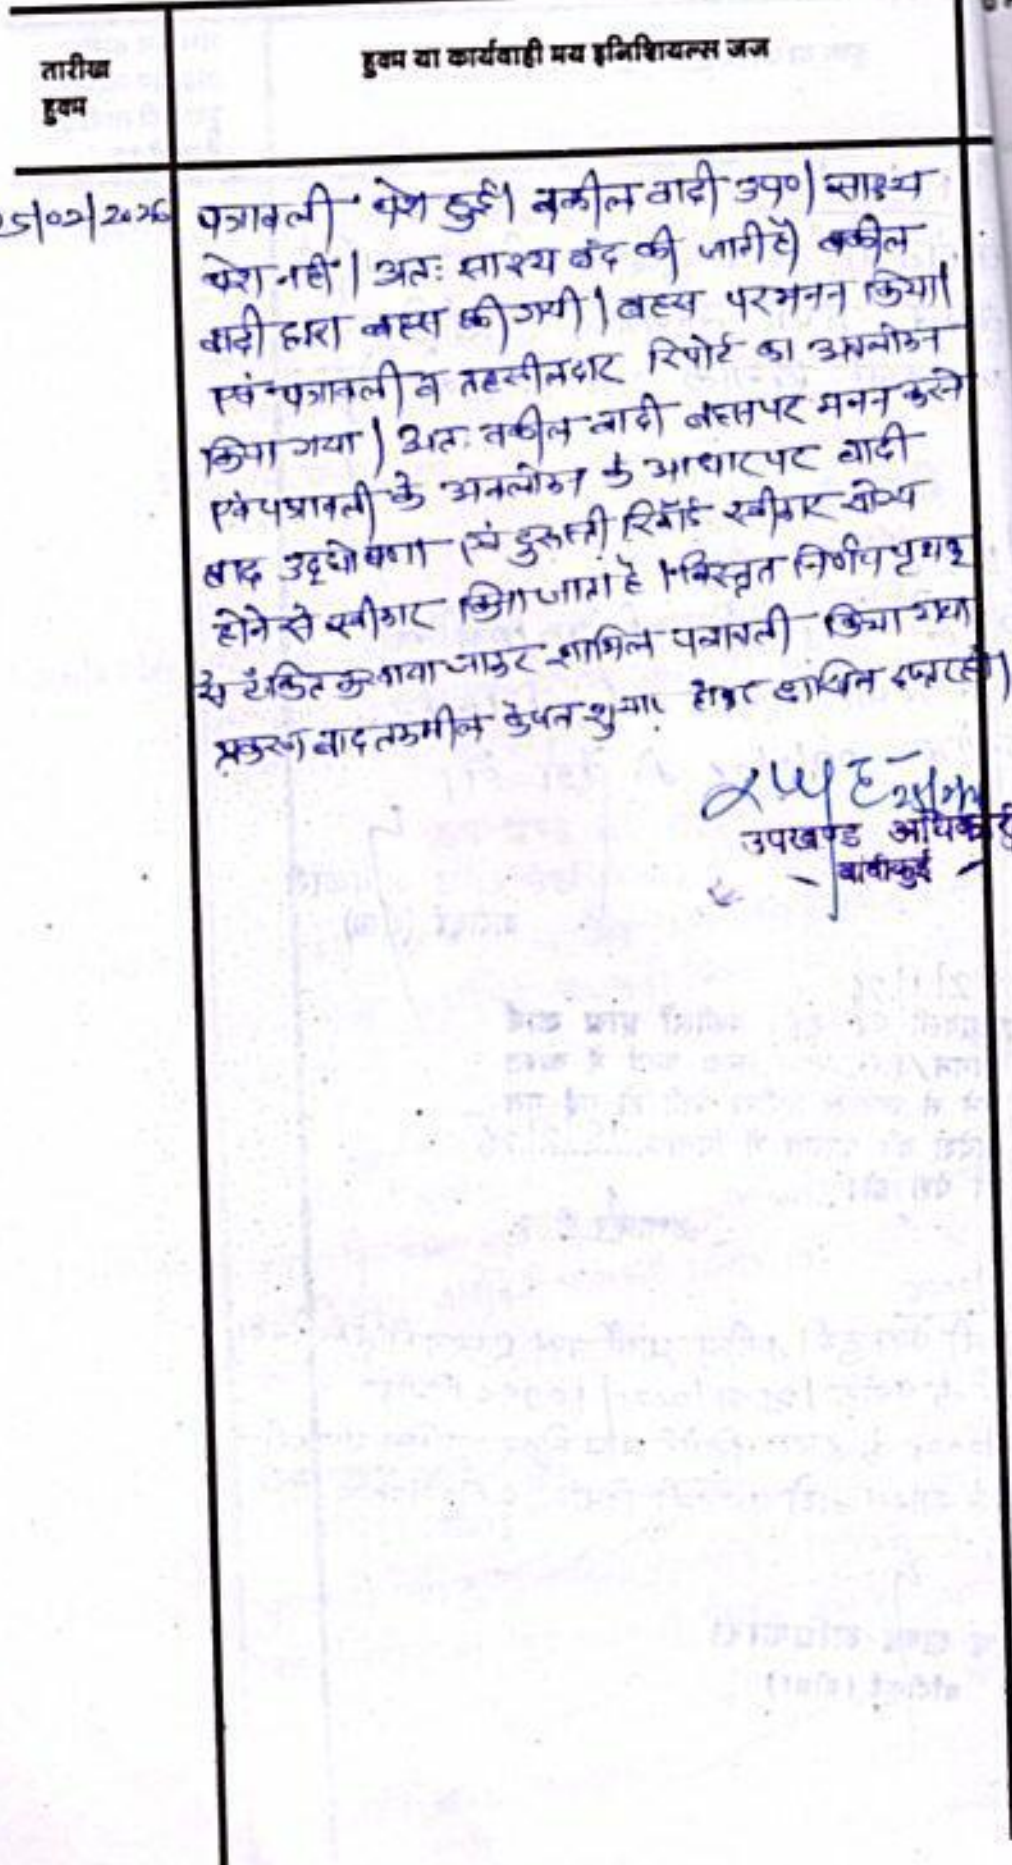 तारीख
हुक्म
हुक्म या कार्यवाही मय इनिशियल्स जज
5/02/2026
पत्रावली पेश हुई। वकील वादी उप०। साक्ष्य
पेश नहीं। अतः साक्ष्य बंद की जाती है। वकील
वादी द्वारा बहस की गयी। बहस पर मनन किया।
एवं पत्रावली व तहसीलदार रिपोर्ट का अवलोकन
किया गया। अतः वकील वादी बहस पर मनन करने
एवं पत्रावली के अवलोकन के आधार पर वादी
वाद उद्घोषणा एवं दुरुस्ती रिकॉर्ड स्वीकार योग्य
होने से स्वीकार किया जाता है। विस्तृत निर्णय पृथक
से टंकित करवाया जाकर शामिल पत्रावली किया गया
प्रकरण बाद तकमील शुमार होकर दाखिल दफ्तर हो।
उपखण्ड अधिकारी
बांदीकुई